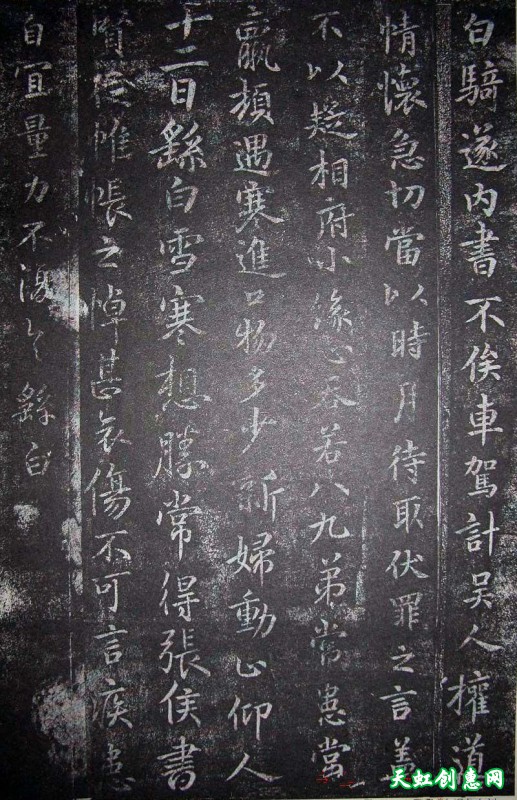 白騎遂内書不俟車駕計吴人權道
情懷急切當以時月待取伏罪之言盖
不以疑相府小緣心吞若八九弟常患常
羸頓遇寒進口物多少新婦動止仰人
十二日繇白雪寒想勝常得張侯書
賢從帷帳之悼甚哀傷不可言疾患
自宜量力不復々繇白
天虹创惠网